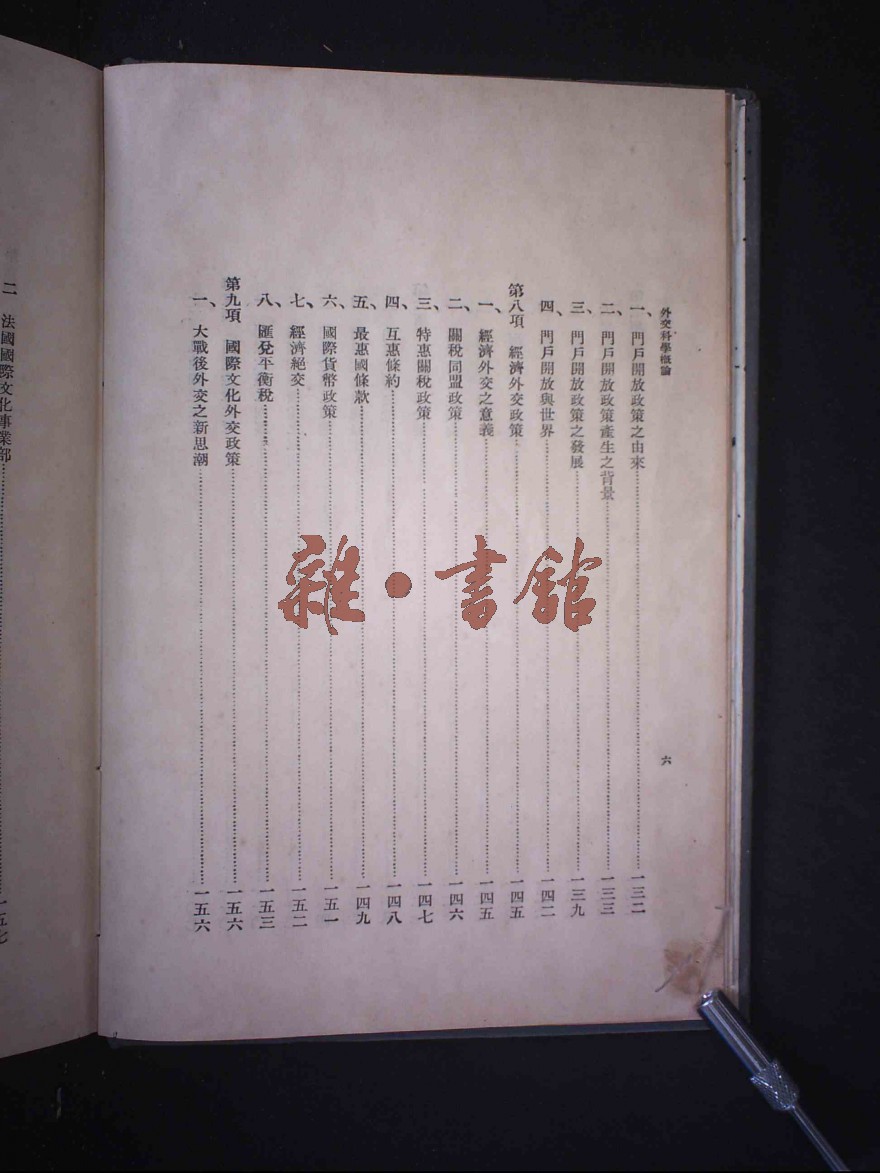 外交科學概論
六
一、門戶開放政策之由來……一三二
二、門戶開放政策產生之背景……一三三
三、門戶開放政策之發展……一三九
四、門戶開放與世界……一四二
第八項　經濟外交政策……一四五
一、經濟外交之意義……一四五
二、關稅同盟政策……一四六
三、特惠關稅政策……一四七
四、互惠條約……一四八
五、最惠國條款……一四九
六、國際貨幣政策……一五一
七、經濟絕交……一五二
八、匯兌平衡稅……一五三
第九項　國際文化外交政策……一五六
一、大戰後外交之新思潮……一五六
二　法國國際文化事業部……一五七
雜·書館